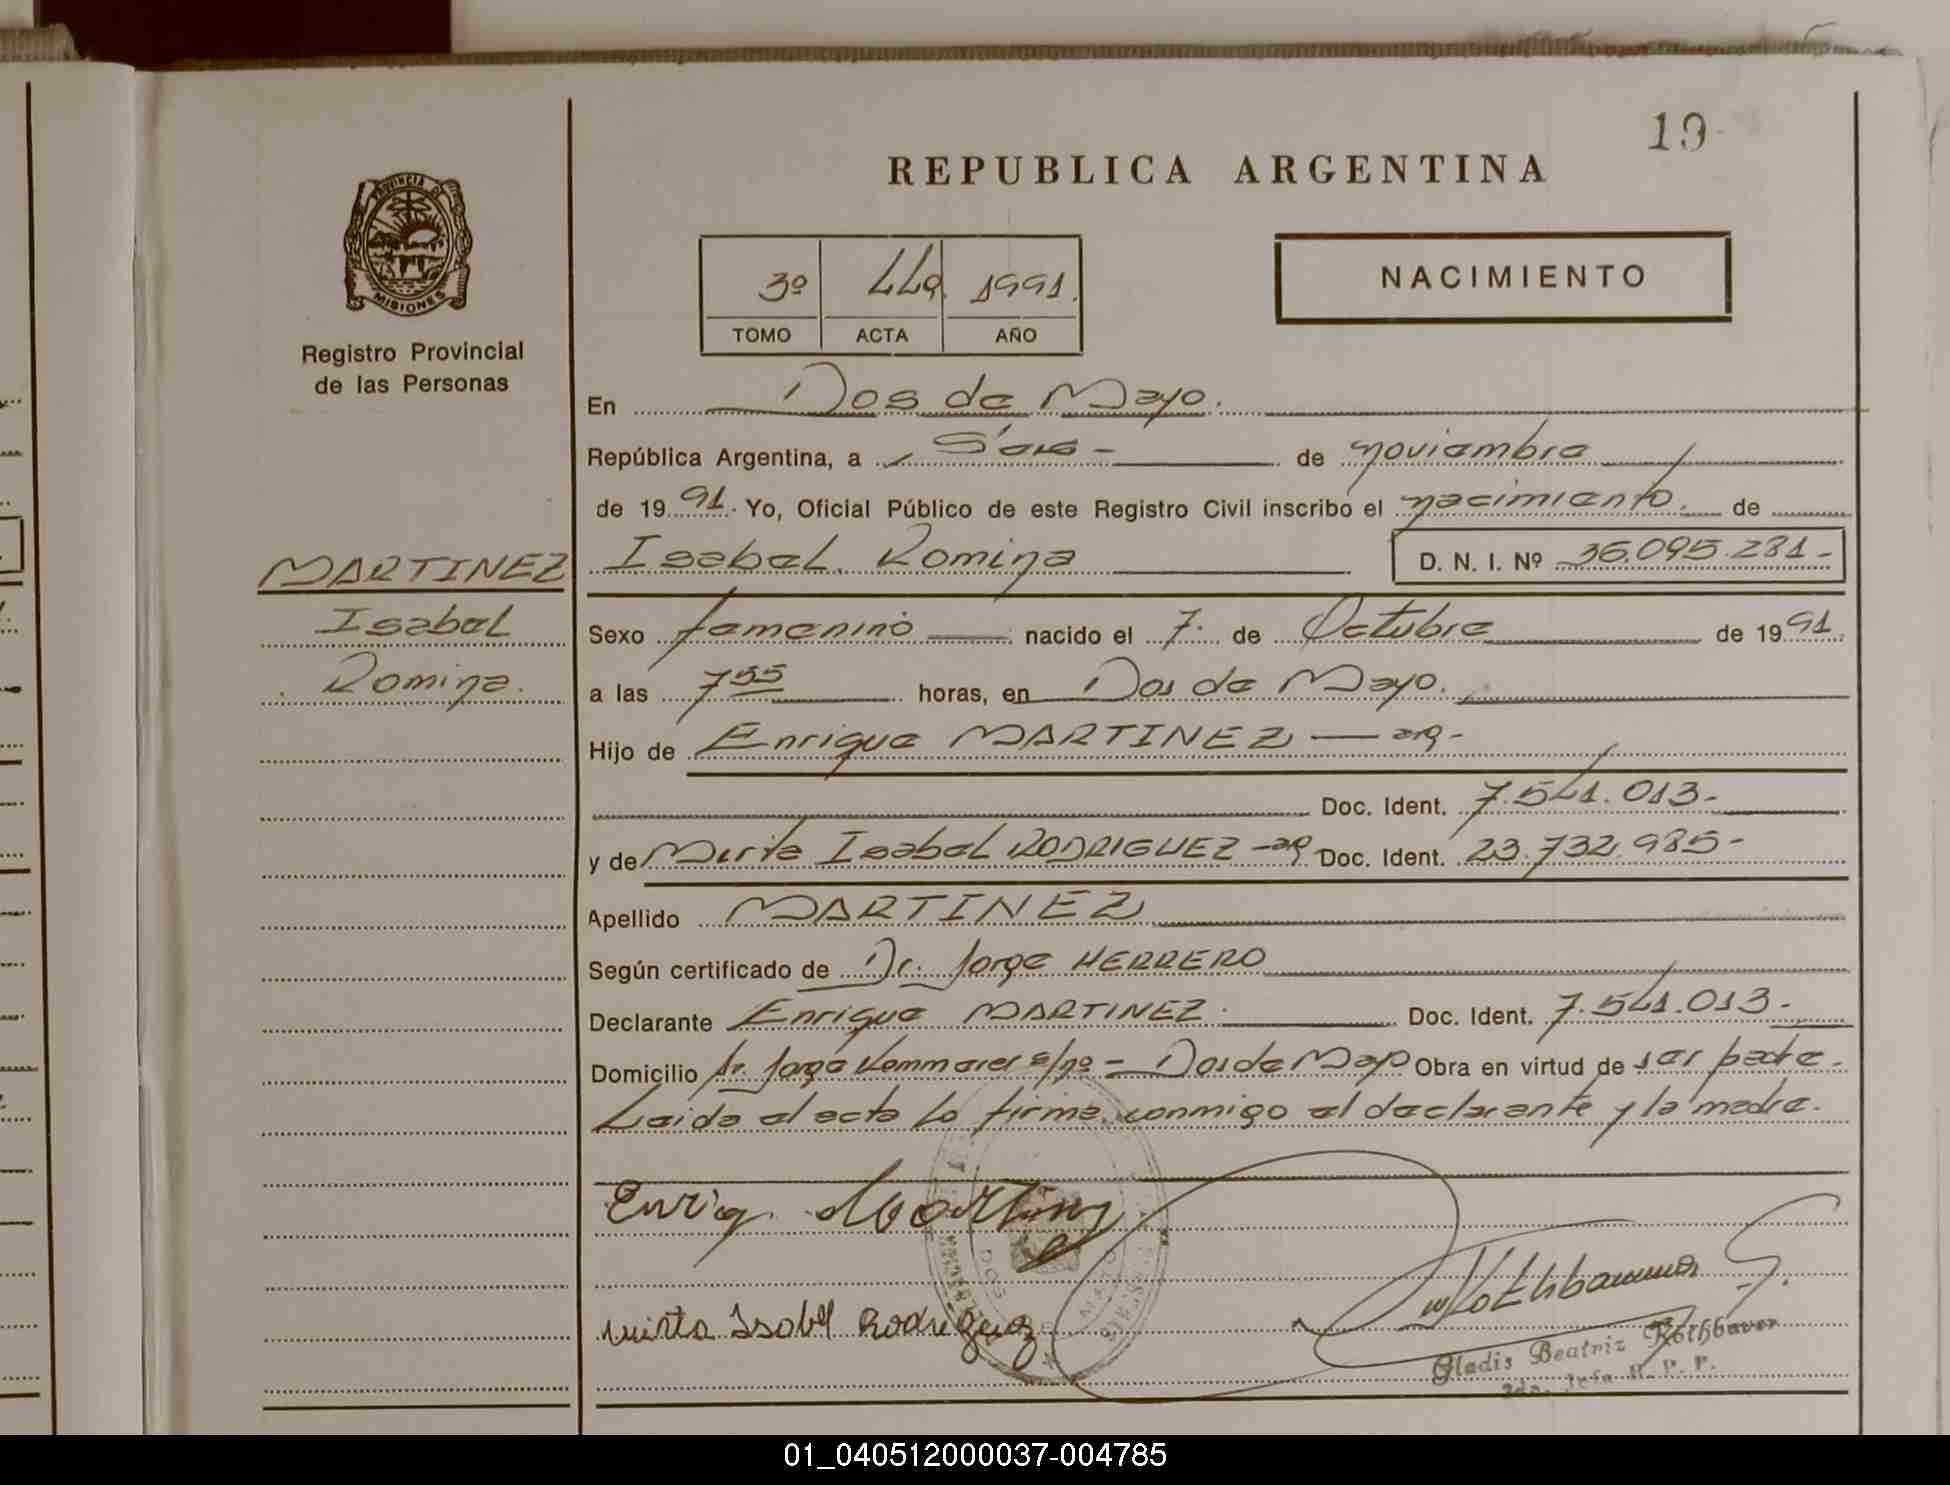 19
REPUBLICA ARGENTINA
PROVINCIA DE
MISIONES
Registro Provincial
de las Personas
3º 449 1991.
TOMO ACTA AÑO
NACIMIENTO
En Dos de Mayo.
República Argentina, a de noviembre
de 19 91. Yo, Oficial Público de este Registro Civil inscribo el nacimiento. de
MARTINEZ
Isabel
Romina.
Isabel Romina D. N. I. Nº 36.095.281-
Sexo femenino nacido el 7. de Octubre de 19 91.
a las 7 55 horas, en Dos de Mayo.
Hijo de Enrique MARTINEZ — arg-
Doc. Ident. 7.541.013-
y de Mirta Isabel RODRIGUEZ -arg Doc. Ident. 23.732.985-
Apellido MARTINEZ
Según certificado de Dr. Jorge HERRERO
Declarante Enrique MARTINEZ. Doc. Ident. 7.541.013-
Domicilio Jorge s/nº - Dos de Mayo Obra en virtud de ser padre.
Leida el acta la firma conmigo el declarante y la madre.
Enriq Martinez
DOS MAYO
mirta Isabel Rodriguez
Rothbauer G.
Gladis Beatriz Rothbauer
2da. Jefa R. P. P.
01_040512000037-004785